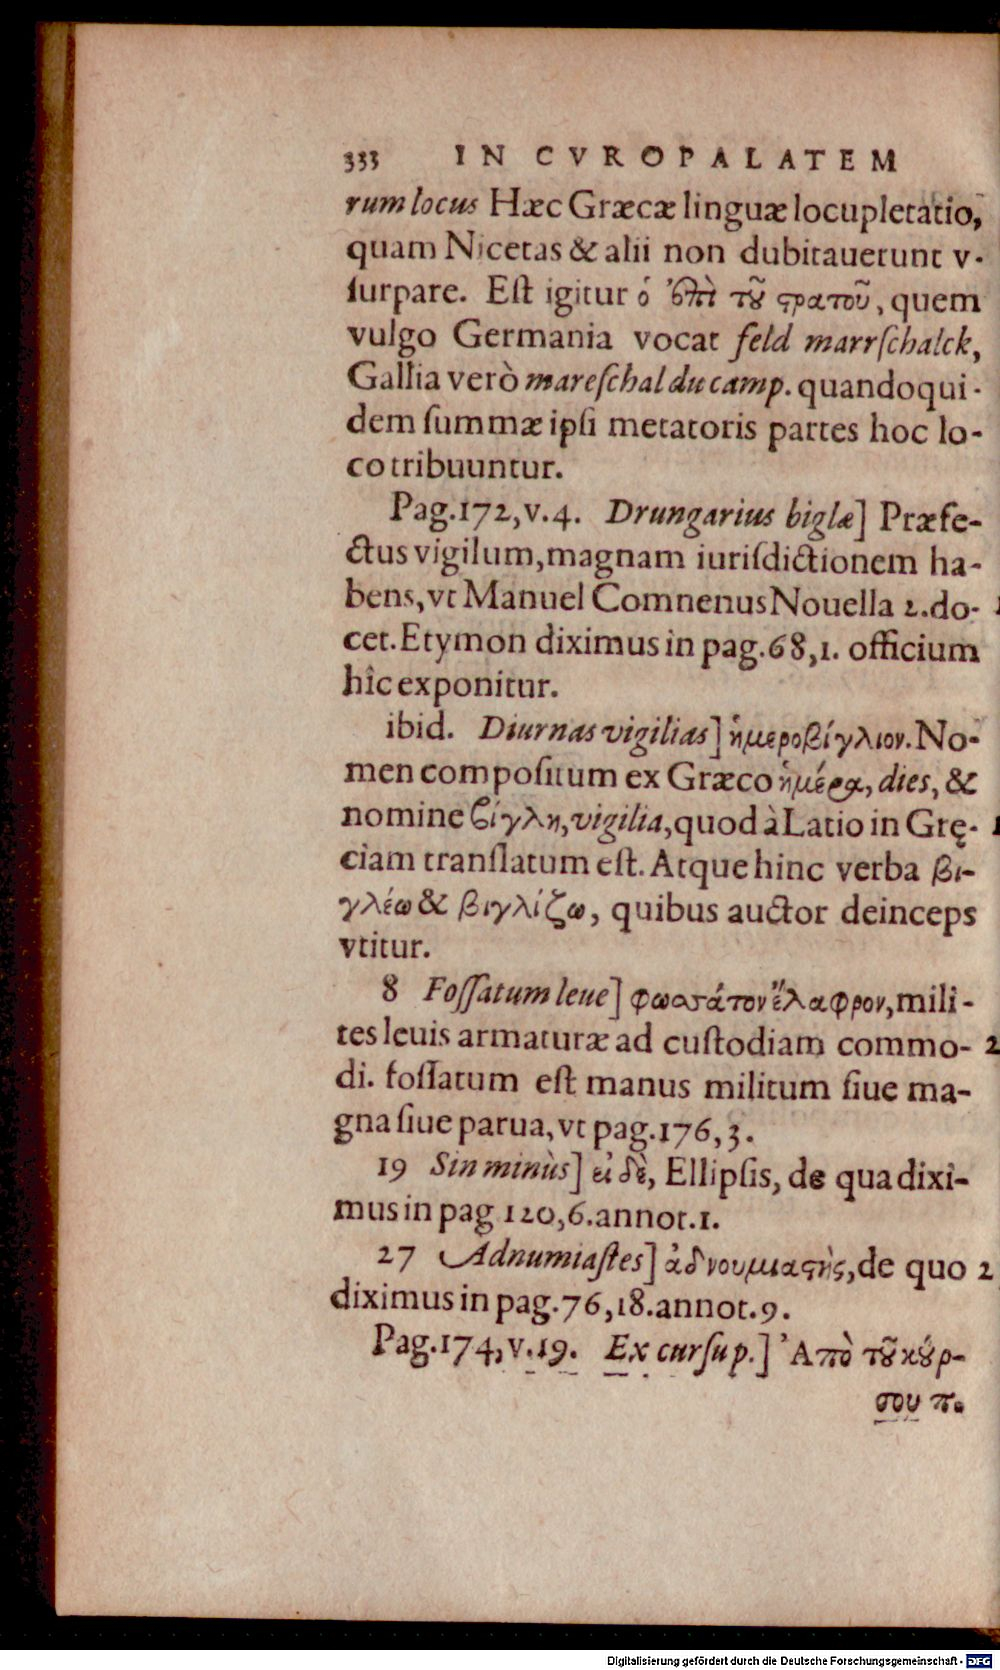 333 IN CVROPALATEM
rum locus Hæc Græcæ linguæ locupletatio,
quam Nicetas & alii non dubitauerunt v-
ſurpare. Eſt igitur ὁ ἐπὶ τοῦ ϛρατοῦ, quem
vulgo Germania vocat feld marrſchalck,
Gallia verò mareſchal du camp. quandoqui-
dem ſummæ ipſi metatoris partes hoc lo-
co tribuuntur.
Pag.172,v.4. Drungarius biglæ] Præfe-
ctus vigilum, magnam iuriſdictionem ha-
bens, vt Manuel Comnenus Nouella 2. do-
cet. Etymon diximus in pag.68,1. officium
hîc exponitur.
ibid. Diurnas vigilias] ἡμεροβίγλιον. No-
men compoſitum ex Græco ἡμέρα, dies, &
nomine βίγλη, vigilia, quod à Latio in Grę-
ciam tranſlatum eſt. Atque hinc verba βι-
γλέω & βιγλίζω, quibus auctor deinceps
vtitur.
8 Foſſatum leue] φωσάτον ἔλαφρον, mili-
tes leuis armaturæ ad cuſtodiam commo-
di. foſſatum eſt manus militum ſiue ma-
gna ſiue parua, vt pag.176,3.
19 Sin minùs] εἰ δὲ, Ellipſis, de qua dixi-
mus in pag 120,6. annot.1.
27 Adnumiaſtes] ἀδνουμιαϛὴς, de quo
diximus in pag.76,18. annot.9.
Pag.174,v.19. Ex curſu p.] Ἀπὸ τοῦ κούρ-
σου π.
Digitalisierung gefördert durch die Deutsche Forschungsgemeinschaft - DFG